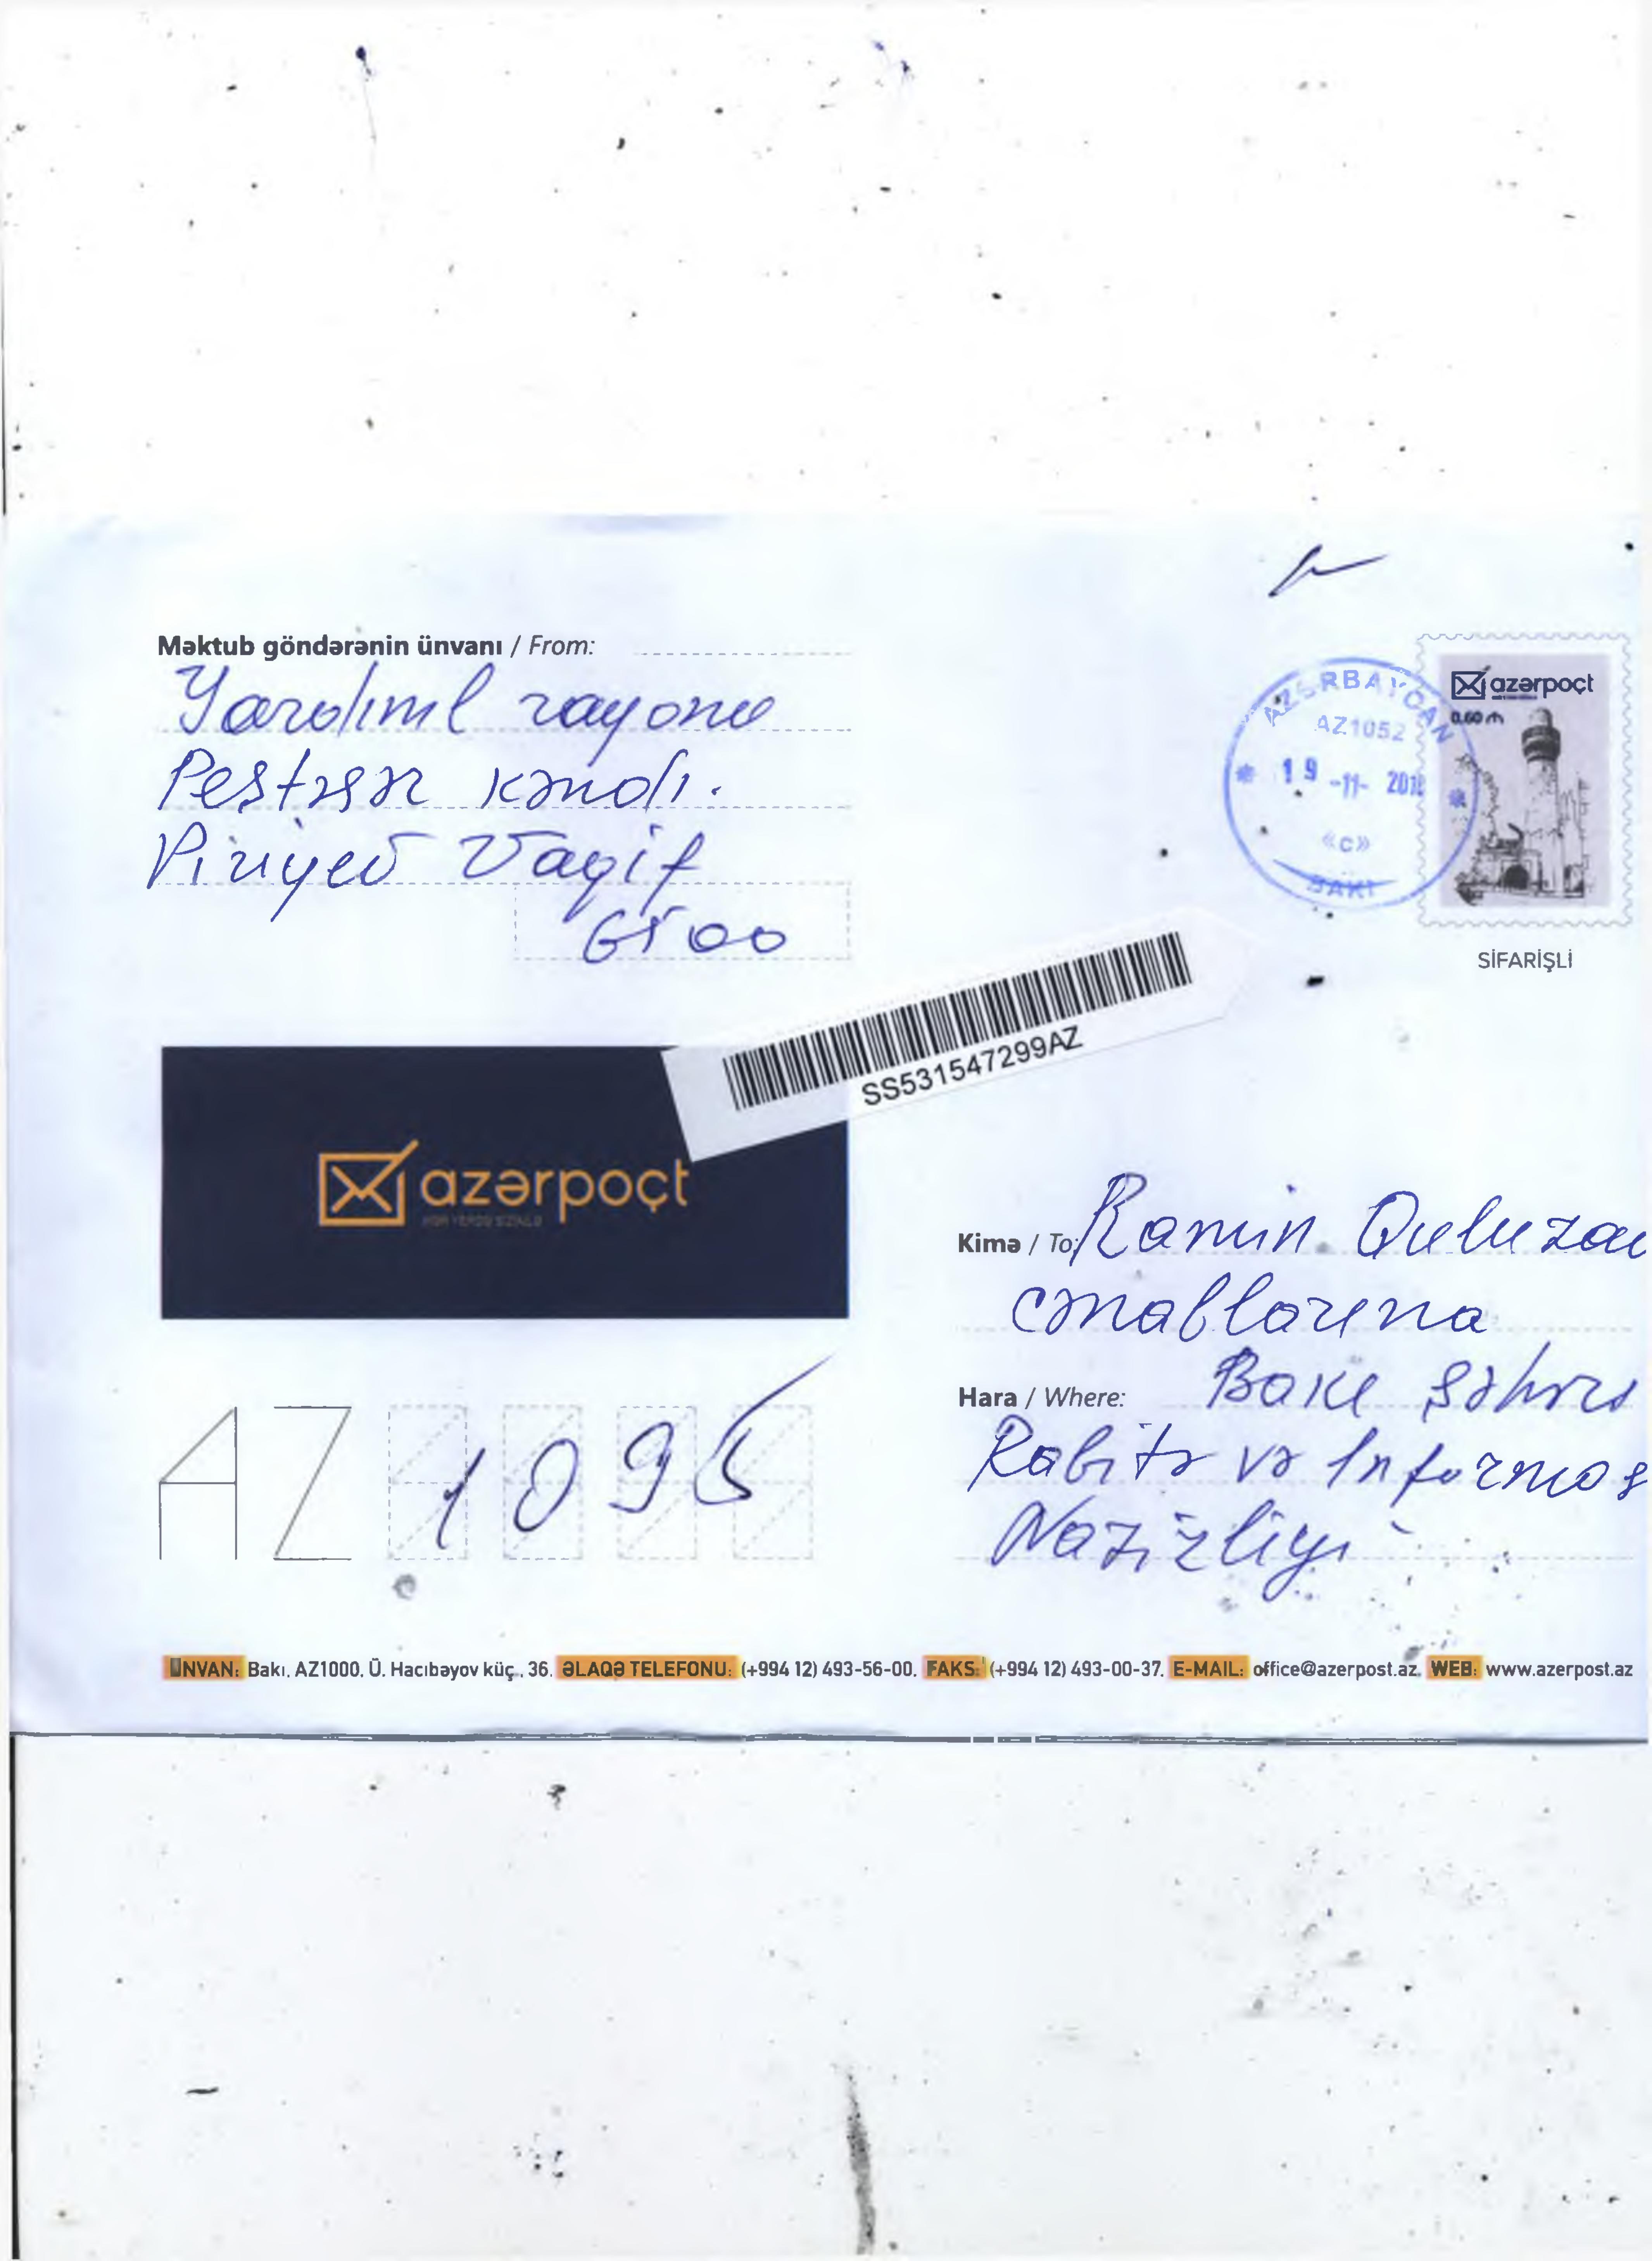 Məktub göndərənin ünvanı / From:
Yardıml rayonu
Peştəsər kəndi.
Piriyev Vaqif
6500
AZƏRBAYCAN
AZ1052
19 -11- 2018
«C»
BAKI
azərpoçt
0.60 ₼
SİFARİŞLİ
SS531547299AZ
azərpoçt
Kimə / To: Ramin Quluza
cənablarına
Hara / Where: Bakı şəhəri
Rabitə və Informas
Nazirliyi
AZ 1095
ÜNVAN: Bakı, AZ1000, Ü. Hacıbəyov küç., 36. ƏLAQƏ TELEFONU: (+994 12) 493-56-00. FAKS: (+994 12) 493-00-37. E-MAIL: office@azerpost.az. WEB: www.azerpost.az